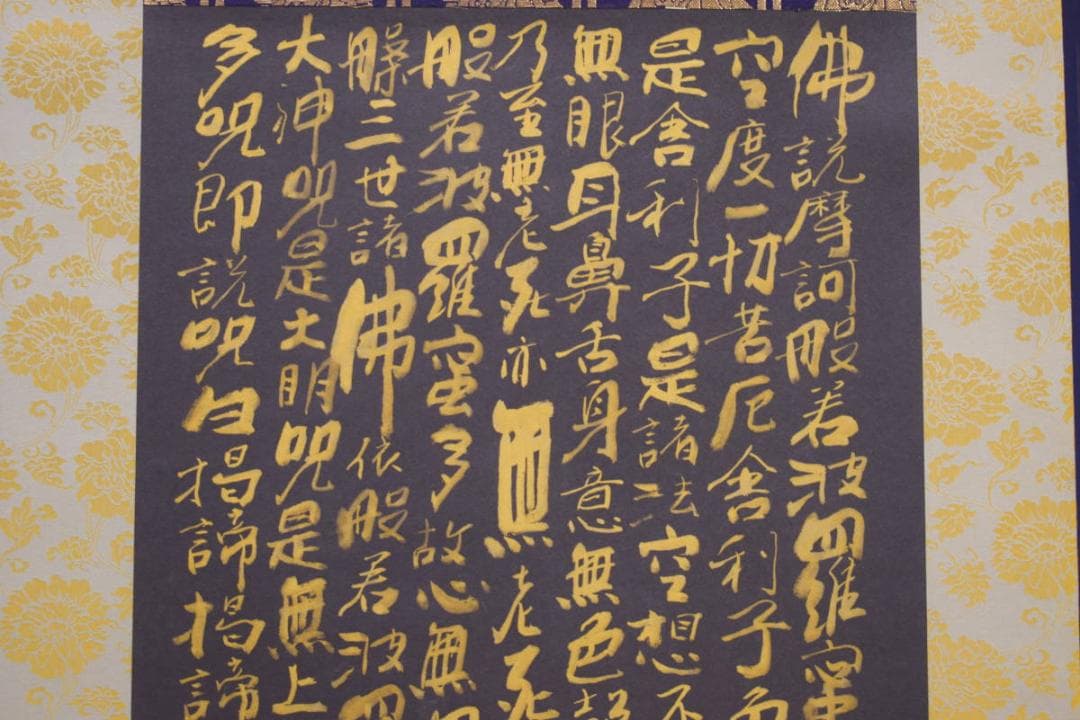 佛説摩訶般若波羅蜜
空度一切苦厄舍利子色
是舍利子是諸法空想不
無眼耳鼻舌身意無色聲
乃至無老死亦無老死
般若波羅蜜多故心無
槃三世諸佛依般若波羅
大神呪是大明呪是無上
多呪即説呪曰揭諦揭諦